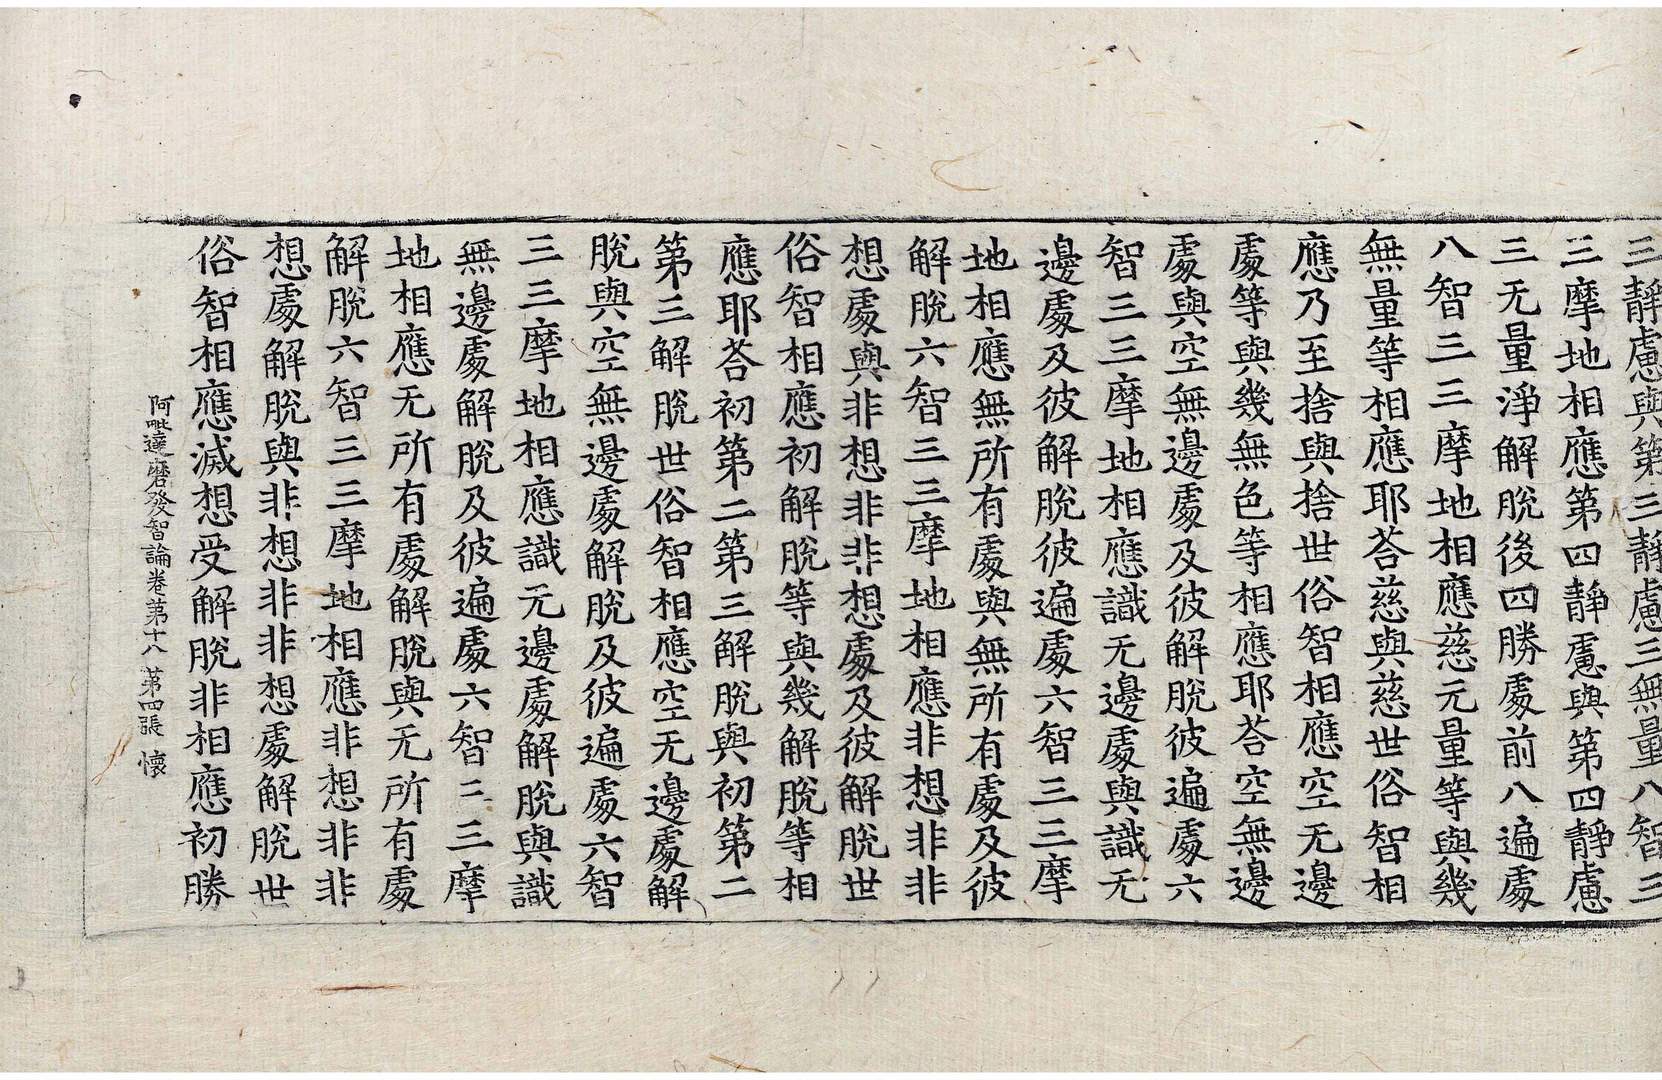 三靜慮與第三靜慮三無量八智三
三摩地相應第四靜慮與第四靜慮
三无量淨解脫後四勝處前八遍處
八智三三摩地相應慈无量等與幾
無量等相應耶荅慈與慈世俗智相
應乃至捨與捨世俗智相應空无邊
處等與幾無色等相應耶荅空無邊
處與空無邊處及彼解脫彼遍處六
智三三摩地相應識无邊處與識无
邊處及彼解脫彼遍處六智三三摩
地相應無所有處與無所有處及彼
解脫六智三三摩地相應非想非非
想處與非想非非想處及彼解脫世
俗智相應初解脫等與幾解脫等相
應耶荅初第二第三解脫與初第二
第三解脫世俗智相應空无邊處解
脫與空無邊處解脫及彼遍處六智
三三摩地相應識无邊處解脫與識
無邊處解脫及彼遍處六智三三摩
地相應无所有處解脫與无所有處
解脫六智三三摩地相應非想非非
想處解脫與非想非非想處解脫世
俗智相應滅想受解脫非相應初勝
阿毗達磨發智論卷第十八 第四張 懷